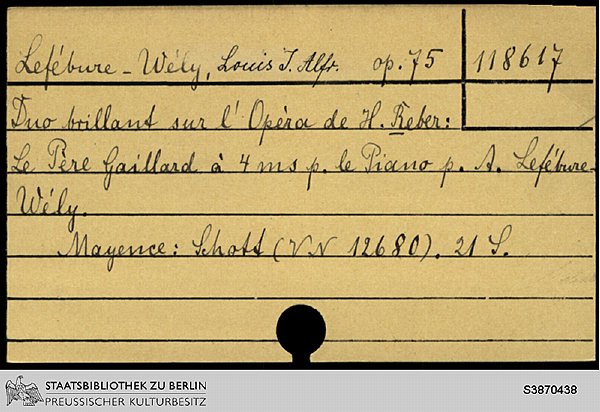 Lefébure-Wély, Louis J. Alfr. op. 75 118617
Duo brillant sur l'Opéra de H. Reber:
Le Père Gaillard à 4 ms p. le Piano p. A. Lefébure-
Wély.
Mayence: Schott (VN 12680). 21 S.
STAATSBIBLIOTHEK ZU BERLIN
PREUSSISCHER KULTURBESITZ
S3870438